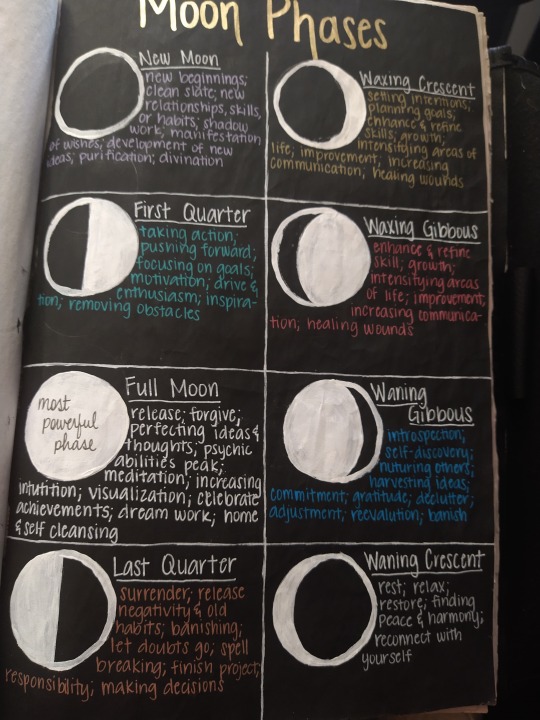 Moon Phases
New Moon
new beginnings;
clean slate; new
relationships, skills,
or habits; shadow
work; manifestation
of wishes; development of new
ideas; purification; divination
Waxing Crescent
setting intentions;
planning goals;
enhance & refine
skills; growth;
intensifying areas of
life; improvement; increasing
communication; healing wounds
First Quarter
taking action;
pushing forward;
focusing on goals;
motivation; drive &
enthusiasm; inspira-
tion; removing obstacles
Waxing Gibbous
enhance & refine
skill; growth;
intensifying areas
of life; improvement;
increasing communica-
tion; healing wounds
most
powerful
phase
Full Moon
release; forgive;
perfecting ideas &
thoughts; psychic
abilities peak;
meditation; increasing
intuition; visualization; celebrate
achievements; dream work; home
& self cleansing
Waning
Gibbous
introspection;
self-discovery;
nuturing others;
harvesting ideas;
commitment; gratitude; declutter;
adjustment; reevalution; banish
Last Quarter
surrender; release
negativity & old
habits; banishing;
let doubts go; spell
breaking; finish project;
responsibility; making decisions
Waning Crescent
rest; relax;
restore; finding
peace & harmony;
reconnect with
yourself